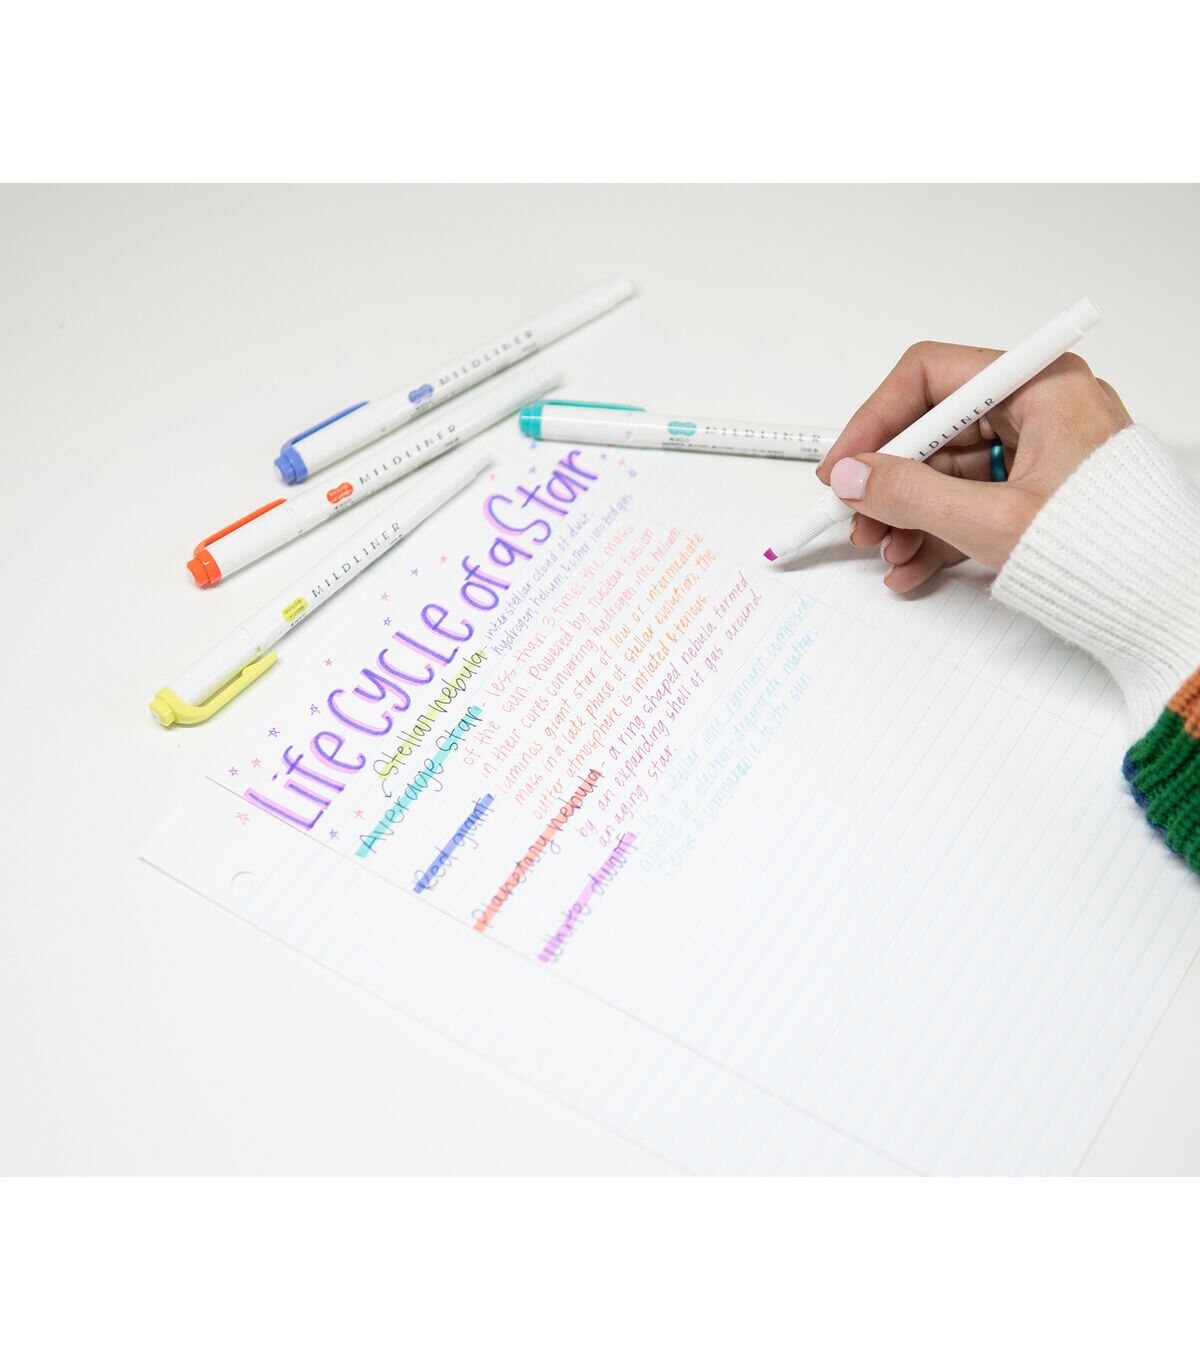 MILDLINER
MILDLINER
MILDLINER
MILDLINER
LDLINER
Life Cycle of a Star
Stellar nebula - interstellar cloud of dust,
hydrogen, helium, & other ionized gas
Average Star - less than 3 times the mass
of the sun. powered by nuclear fusion
in their cores converting hydrogen into helium.
Red giant luminos giant star of low or intermediate
mass in a late phase of stellar evolution. the
outter atmosphere is inflated & tenous
Planetary nebula - a ring shaped nebula formed
by an expanding shell of gas around
an aging star.
White dwarf is a stellar core remnant composed
mostly of electron-degenerate matter.
Dense & comparable to the sun